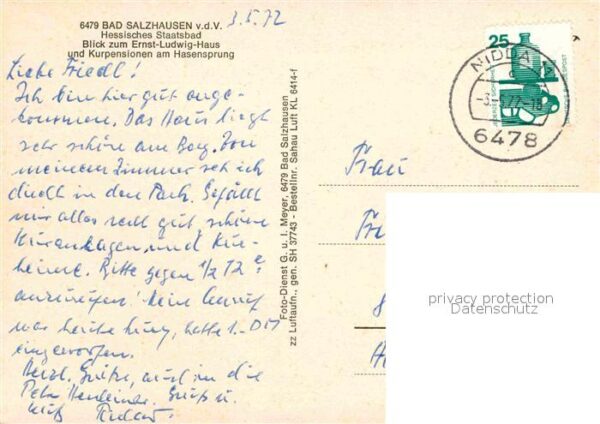 6479 BAD SALZHAUSEN v.d.V.
Hessisches Staatsbad
Blick zum Ernst-Ludwig-Haus
und Kurpensionen am Hasensprung
3.5.72
Liebe Friedl!
Ich bin hier gut ange-
kommen. Das Haus liegt
sehr schön am Berg. Von
meinem Zimmer seh ich
direkt in den Park. Gefällt
mir alles recht gut, schöne
Kuranlagen, und Kur-
heime. Bitte gegen 1/2
anzurufen! Mein Anruf
war heute kurz, hatte 1.- DM
eingeworfen.
Herzl. Grüße, auch an die
Gruß u.
Kuß
Foto-Dienst G. u. I. Meyer, 6479 Bad Salzhausen
zz Luftaufn., gen. SH 37743 - Bestellnr. Sahau Luft KL 6414-f
25
NIDDA
6478
Frau
privacy protection
Datenschutz